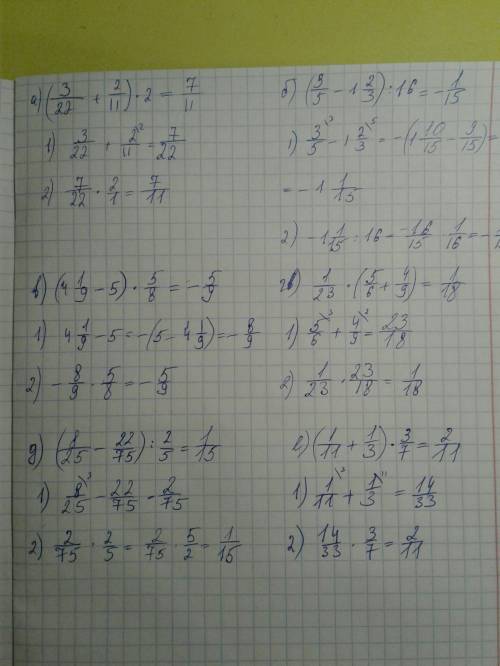 а) (3/22 + 2/11) · 2 = 7/11
1) 3/22 + 2\²/11 = 7/22
2) 7/22 · 2/1 = 7/11
б) (3/5 - 1 2/3) : 16 = -1/15
1) 3\³/5 - 1 2\⁵/3 = -(1 10/15 - 9/15) =
= -1 1/15
2) -1 1/15 : 16 = -16/15 · 1/16 = -1/
в) (4 1/9 - 5) · 5/8 = -5/9
1) 4 1/9 - 5 = -(5 - 4 1/9) = -8/9
2) -8/9 · 5/8 = -5/9
г) 1/23 · (5/6 + 4/9) = 1/18
1) 5\³/6 + 4\²/9 = 23/18
2) 1/23 · 23/18 = 1/18
д) (8/25 - 22/75) : 2/5 = 1/15
1) 8\³/25 - 22/75 = 2/75
2) 2/75 : 2/5 = 2/75 · 5/2 = 1/15
е) (1/11 + 1/3) · 3/7 = 2/11
1) 1\³/11 + 1\¹¹/3 = 14/33
2) 14/33 · 3/7 = 2/11